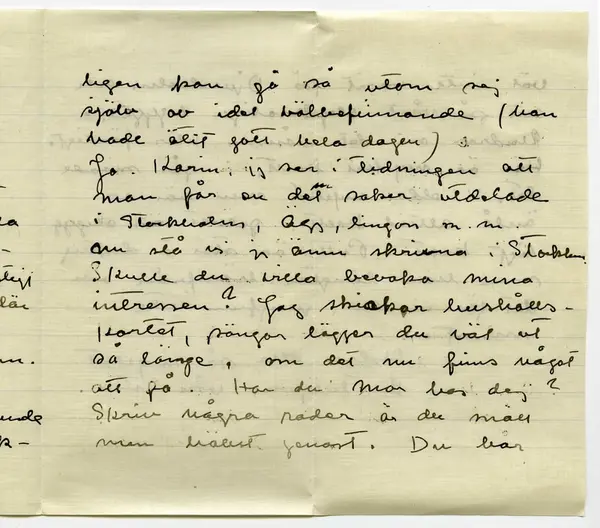 ligen kan gå så utom sej
själv av idel välbefinnande (han
hade ätit gott hela dagen) :
Ja. Karin, jag ser i tidningen att
man får en del saker utdelade
i Stockholm, Ägg, lingon m. m
nu stå vi ju ännu skrivna i Stockholm
Skulle du vilja bevaka mina
intressen? Jag skickar hushålls-
kortet, pengar lägger du väl ut
så länge, om det nu finns något
att få. Har du Mor hos dej?
Skriv några rader är du snäll
men helst genast. Du bör